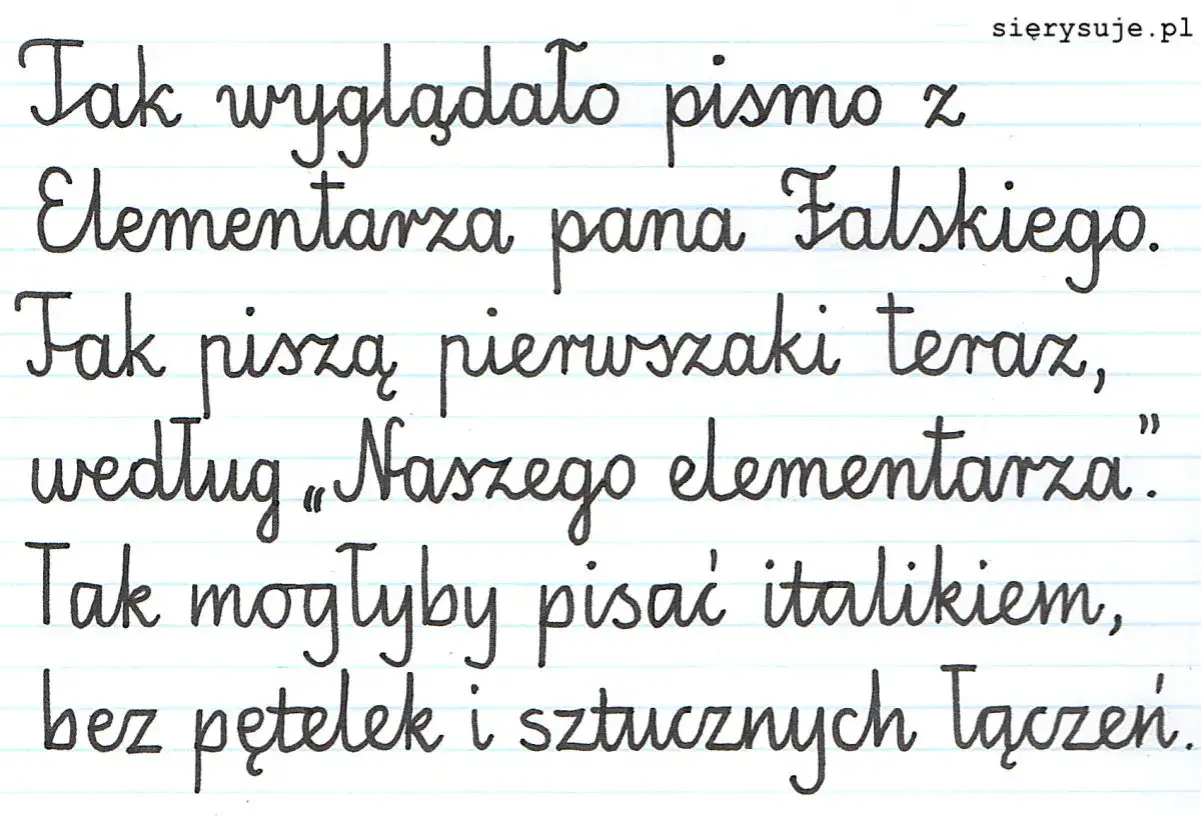 sięrysuje.pl
Tak wyglądało pismo z
Elementarza pana Falskiego.
Tak piszą pierwszaki teraz,
według „Naszego elementarza”.
Tak mogłyby pisać italikiem,
bez pętelek i sztucznych łączeń.